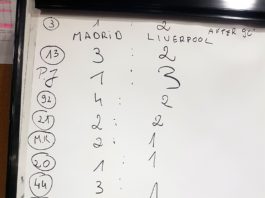 3 1 : 2 AFTER 90'
MADRID LIVERPOOL
13 3 : 2
PJ 1 : 3
92 4 : 2
21 2 : 2
M.K 2 : 1
20 1 : 1
44 3 : 1